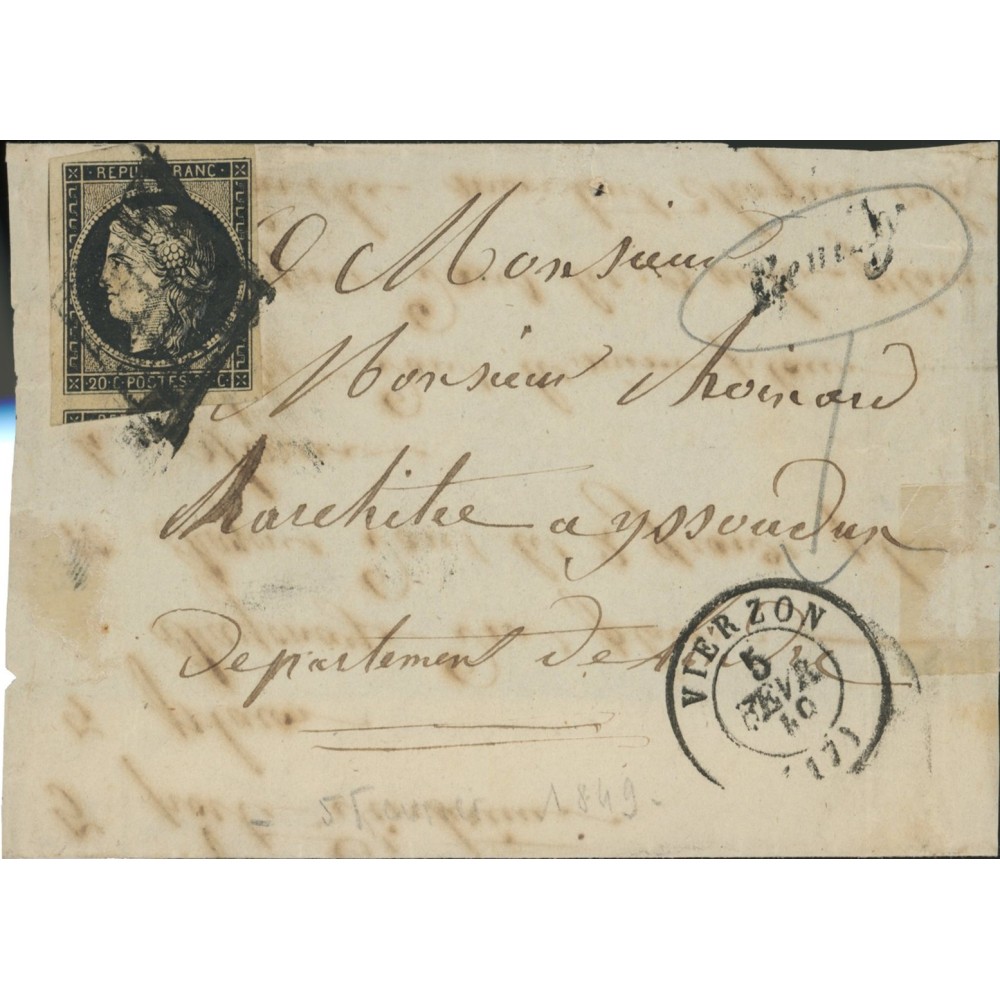 REPUB FRANC
20 C POSTES 20 C
A Monsieur
Monsieur Thoinard
Marchître a yssoudun
Departement de
VIERZON
5
FEVR
49
(17)
5 1849.